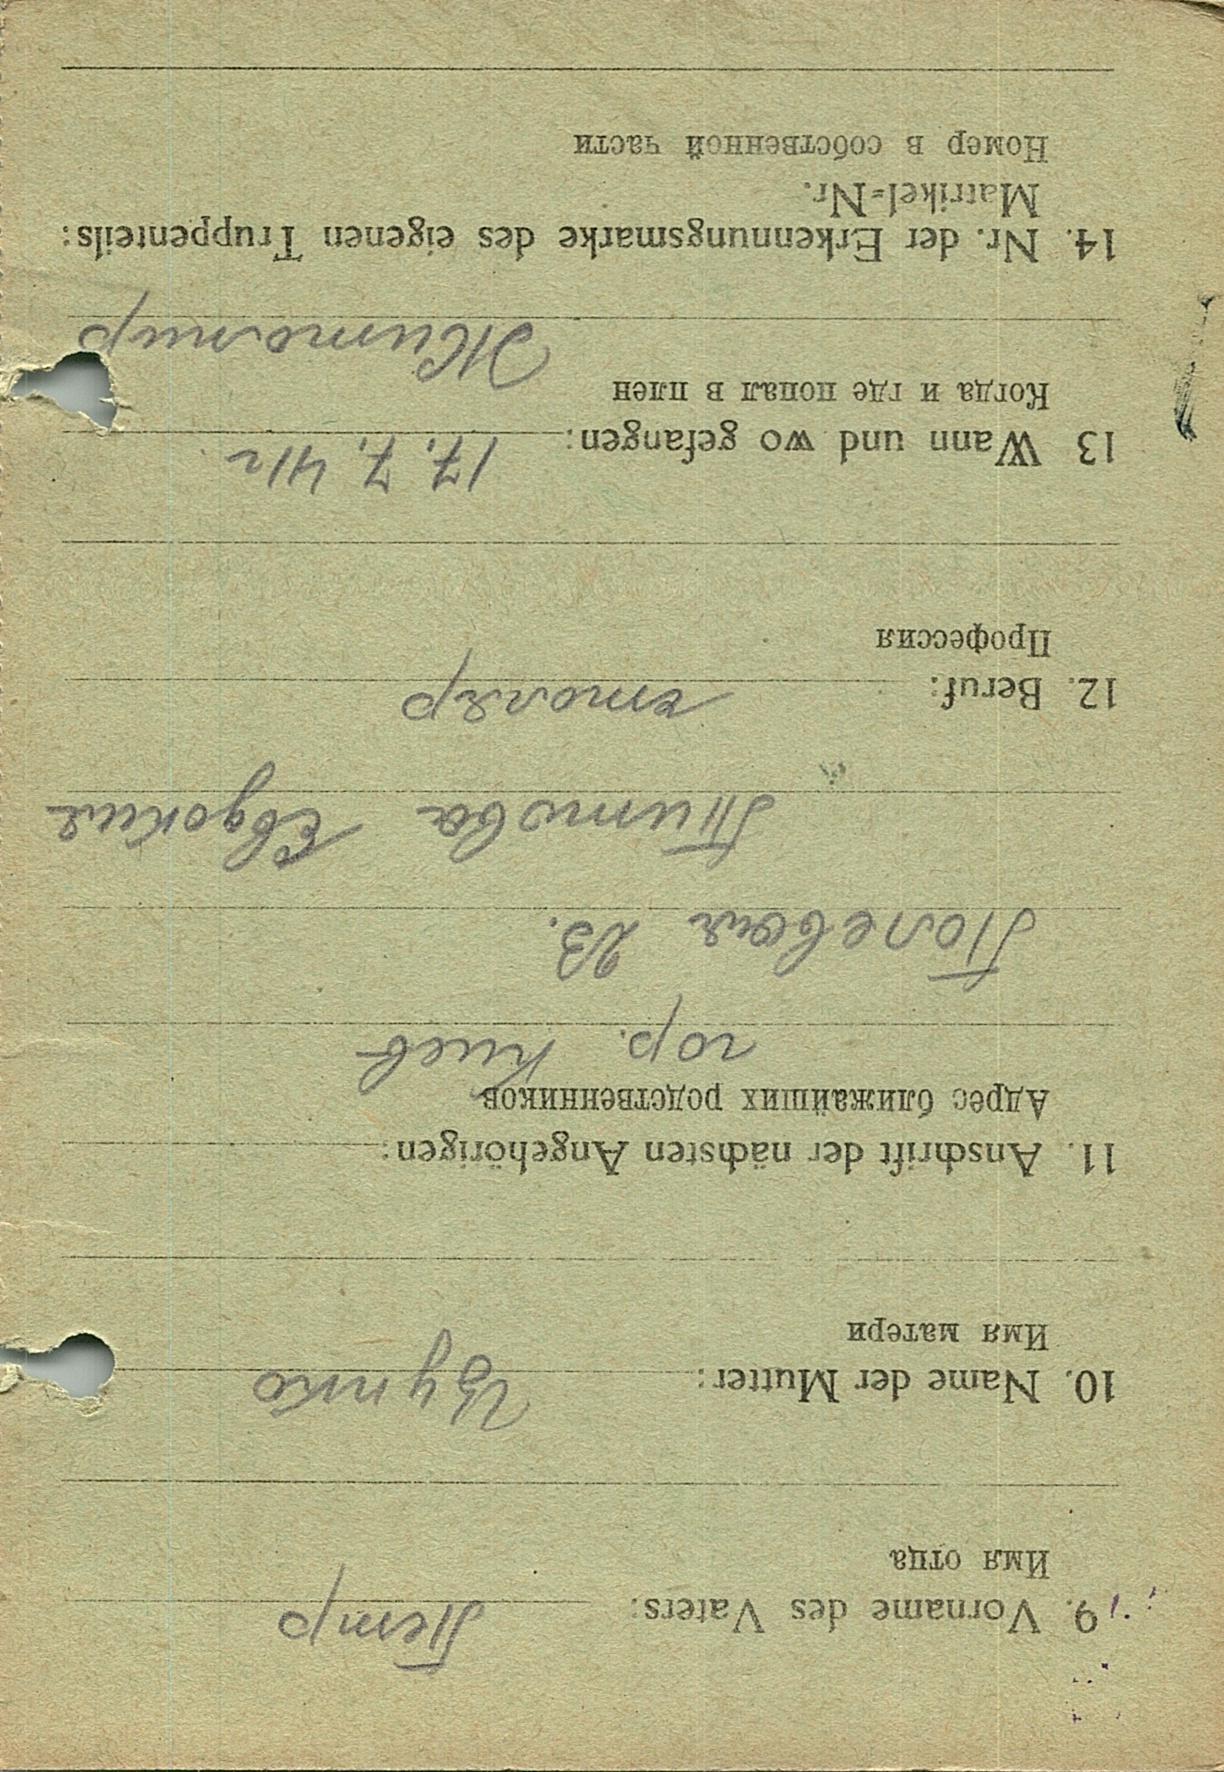 9. Vorname des Vaters: Петр
Имя отца
10. Name der Mutter: Цупко
Имя матери
11. Anschrift der nächsten Angehörigen:
Адрес ближайших родственников
гор. Киев
Полевая 23.
Титова Евдокия
12. Beruf: столяр
Профессия
13 Wann und wo gefangen: 17. 7. 41г
Когда и где попал в плен
Житомир
14. Nr. der Erkennungsmarke des eigenen Truppenteils:
Matrikel=Nr.
Номер в собственной части